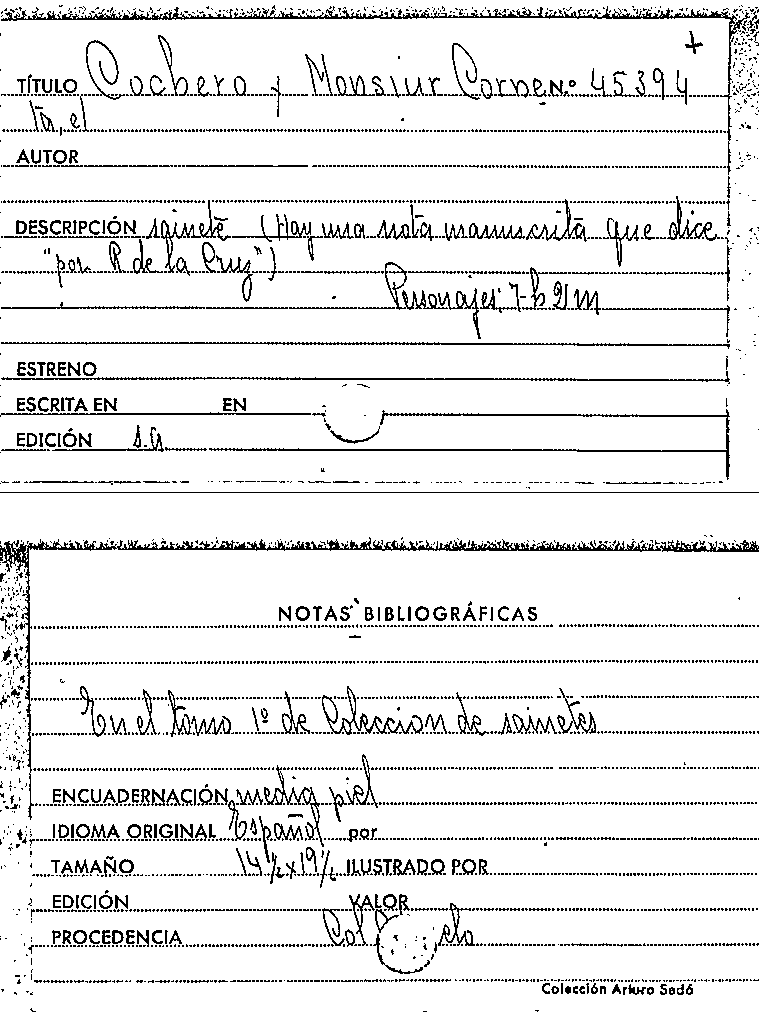 +
TÍTULO Cochero y Monsiur Corne N.º 45394
ta, el
AUTOR
DESCRIPCIÓN sainete (Hay una nota manuscrita que dice
"por R de la Cruz")
Personajes: 7 h 2 m
ESTRENO
ESCRITA EN EN
EDICIÓN s.a
NOTAS BIBLIOGRÁFICAS
En el tomo 1º de Coleccion de sainetes
ENCUADERNACIÓN media piel
IDIOMA ORIGINAL Español por
TAMAÑO 14 1/2 x 19 1/2 ILUSTRADO POR
EDICIÓN VALOR
PROCEDENCIA Col
Colección Arturo Sedó